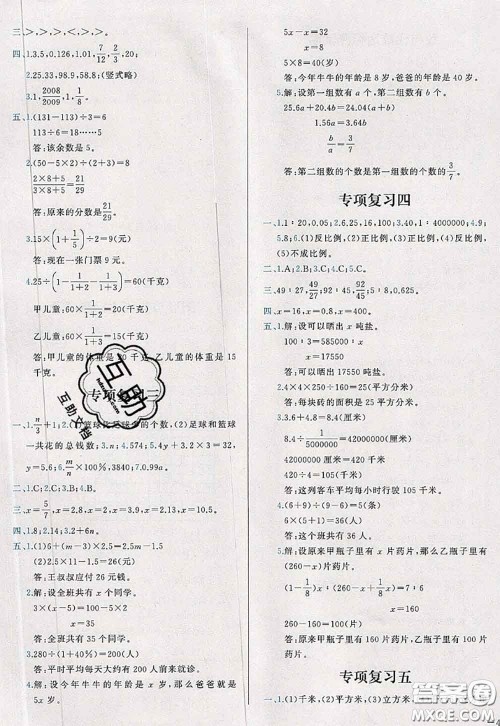 三、>,>,>,<,>,>.
四、1.3.5,0.126,1.01,7/12,3/13,20;
2.25.33,98.9,58.8(竖式略)
3.1,2008/2009,18.
五、1.(131-113)÷3=6
113÷6=18……5
答:该余数是5。
2.(50-5×2)÷(2+8)=4
2×8+5/3×8+5=21/29
答:原来的分数是21/29。
3.15×(1+1/5)÷2=9(元)
答:现在一张门票9元。
4.25÷(1/1+2-1/1+3)=60(千克)
甲儿童:60×1/1+2=20(千克)
乙儿童:60×1/1+3=15(千克)
答:甲儿童的体重是20千克,乙儿童的体重是15
千克。
专项复习三
一、1.
共花的总钱数;3.n;4.574;5.4y+3.2×3=32,
y=5.6;6.m/n×100%,3840;7.0.99a.
二、1.C;2.C;3.B;4.B.
三、x=5/7,x=2.8,x=0.7,x=2.13,x=10.5.
四、1.8;2.14;3.2+6n.
五、1.(1)6+(m-3)×2.5=2.5m-1.5
(2)2.5×11-1.5=26(元)
答:王叔叔应付26元钱。
2.解:设全班共有x个同学。
x=35
答:全班共有35个同学。
3.280÷(1+40%)=200(人)
答:平时平均每天大约有200人前来就诊。
4.解:设今年牛牛的年龄是x岁,那么爸爸的年龄就是
5x岁。
5x-x=32
x=8
5×8=40(岁)
答:今年牛牛的年龄是8岁,爸爸的年龄是40岁。
5.解:设第一组数有a个,第二组数有b个。
25.6a+20.4b=24.04(a+b)
1.56a=3.64b
b/a=3/7
答:第二组数的个数是第一组数的个数的3/7。
专项复习四
一、1.1∶20,0.05;2.6.25,16,100;3.40;4.1∶4000000;4.9;
5.8;6.(1)反比例,(2)正比例,(3)正比例,(4)反比例.
二、1.A;2.B;3.C;4.B.
三、49∶27,45/49,27/92;45∶92.
四、x=16,x=0.8,x=400.
五、1.解:设可以晒出x吨盐。
x=17550
答:可以晒出17550吨盐。
2.(4×80)÷(4+8.8)=25(平方分米)
答:每块砖的面积是25平方分米。
3.8.4÷1/5000000=42000000(厘米)
42000000厘米=420千米
420÷4=105(千米)
答:这列客车平均每小时行驶了105千米。
4.260÷(260÷5-9)=6(条)
6×(5+1)=36(人)
答:这个班共有36人。
5.解:设原来甲瓶子里有x片药片,那么乙瓶子里有
(260-x)片药片。
(x-1/8x)∶(260-x+1/8x)=7∶6
x=160
260-160=100(片)
答:原来甲瓶子里有160片药片,乙瓶子里有
100片药片。
专项复习五
一、1.(1)千米,(2)平方米,(3)立方米
互助
互助文档
答案圈
MXQE.COM